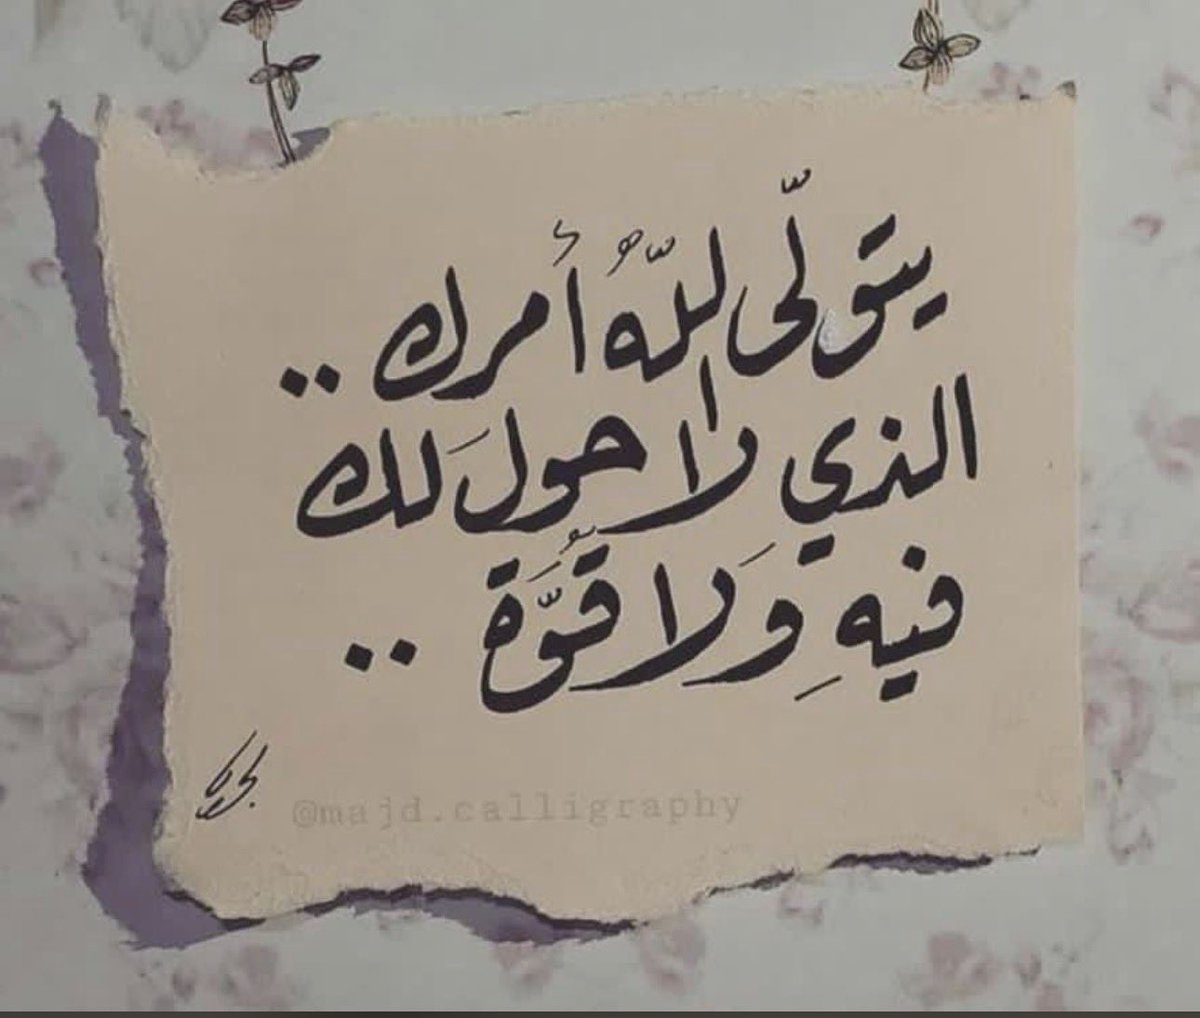 يتولّى للّهُ أمرك ..
الذي لا حول لَك
فيهِ وَلا قُوَّة ..
@majd.calligraphy